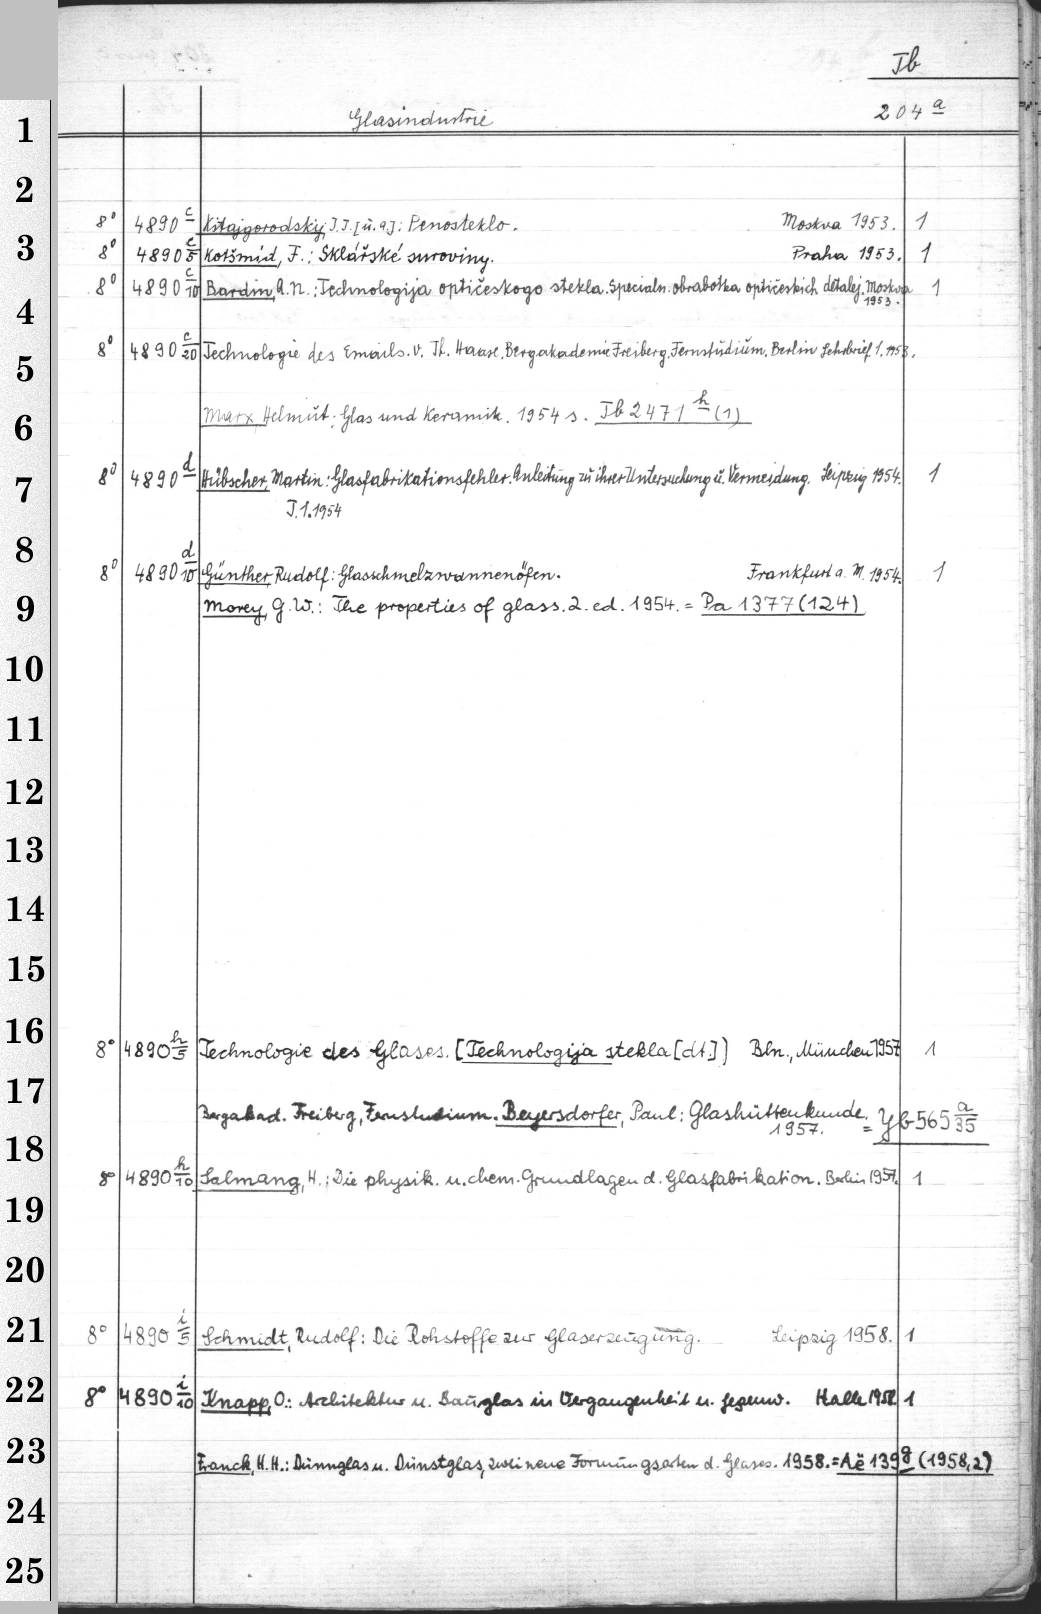 Tb
Glasindustrie 204 a
1
2
8° 4890 c Kitajgorodskij, I. I. [u. a.]: Penosteklo. Moskva 1953. 1
3 8° 4890 c/5 Kotšmid, F.: Sklářské suroviny. Praha 1953. 1
8° 4890 c/10 Bardin, A. N.: Technologija optičeskogo stekla. Specialn. obrabotka optičeskich detalej. Moskva 1953. 1
4
5 8° 4890 c/20 Technologie des Emails. v. Th. Haase. Bergakademie Freiberg. Fernstudium. Berlin Lehrbrief 1. 1953.
6 Marx, Helmut: Glas und Keramik. 1954 s. Tb 2471 h (1)
7 8° 4890 d Hübscher, Martin: Glasfabrikationsfehler. Anleitung zu ihrer Untersuchung u. Vermeidung. Leipzig 1954. 1
T. 1. 1954
8
8° 4890 d/10 Günther, Rudolf: Glasschmelzwannenöfen. Frankfurt a. M. 1954. 1
9 Morey, G. W.: The properties of glass. 2. ed. 1954. = Pa 1377 (124)
10
11
12
13
14
15
16 8° 4890 h/5 Technologie des Glases. [Technologija stekla [dt.]] Bln., München 1957 1
17 Bergakad. Freiberg, Fernstudium. Beyersdorfer, Paul: Glashüttenkunde. 1957. = Yb 565 a/35
18
8° 4890 h/10 Salmang, H.: Die physik. u. chem. Grundlagen d. Glasfabrikation. Berlin 1957. 1
19
20
21 8° 4890 i/5 Schmidt, Rudolf: Die Rohstoffe zur Glaserzeugung. Leipzig 1958. 1
22 8° 4890 i/10 Knapp, O.: Architektur u. Bauglas in Vergangenheit u. Gegenw. Halle 1958. 1
23 Franck, H. H.: Dünnglas u. Dünstglas, zwei neue Formungsarten d. Glases. 1958. = Aě 139 g (1958,2)
24
25